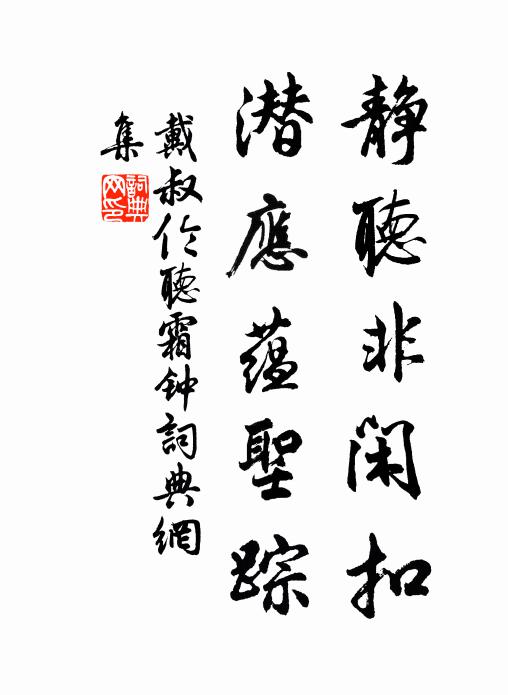 静聽非闲扣
潜應蕴聖踪
戴叔伦聽霜钟詞典網
集
詞典网印